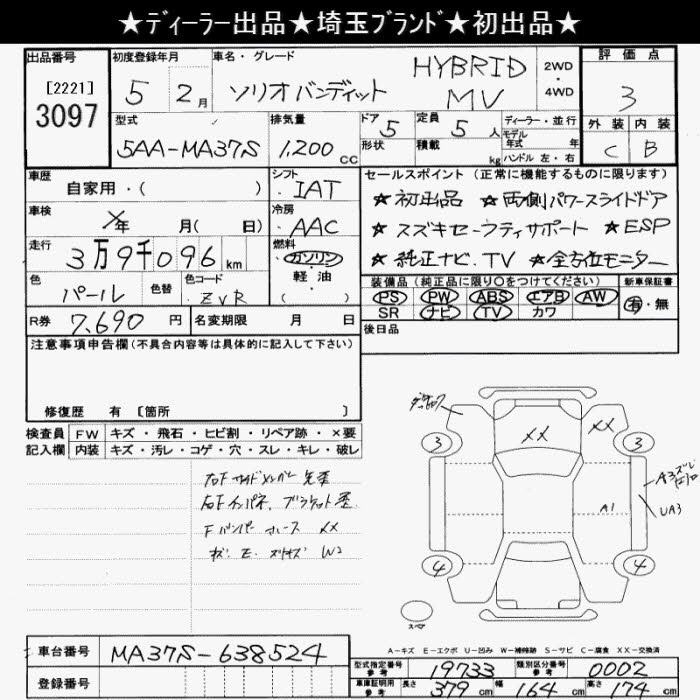 ★ディーラー出品★埼玉ブランド★初出品★
出品番号
[2221]
3097
初度登録年月
5 2月
車名・グレード
ソリオバンディット
HYBRID
MV
2WD
・
4WD
評価点
3
外装 内装
C B
型式
5AA-MA37S
排気量
1,200 CC
ドア
5
形状
定員
5 人
積載
kg
ディーラー・並行
モデル
年式 年
ハンドル 左・右
車歴
自家用・( )
シフト
IAT
セールスポイント(正常に機能するものに限ります)
★初出品 ★両側パワースライドドア
★スズキセーフティサポート ★ESP
★純正ナビ.TV ★全方位モニター
車検
年 月( 日)
冷房
AAC
走行
3万9千096 km
燃料
ガソリン
軽油
( )
色
パール
色替
色コード
ZVR
装備品(純正品に限り○をつけてください)
PS PW ABS エアB AW
SR ナビ TV カワ
新車保証書
有・無
R券 7,690 円
名変期限 月 日
後日品
注意事項申告欄(不具合内容等は具体的に記入して下さい)
修復歴 有 [箇所 ]
検査員 FW キズ・飛石・ヒビ割・リペア跡・×要
記入欄 内装 キズ・汚レ・コゲ・穴・スレ・キレ・破レ
右Fインパネ、ブラケット歪
Fバンパー ホース XX
W2
XX
XX
3
3
4
4
A3
UA3
A1
スペア
A-キズ E-エクボ U-凹み W-補修跡 S-サビ C-腐食 XX-交換済
車台番号 MA37S-638524
登録番号
型式指定番号
参考
19733
類別区分番号
参考
0002
車庫証明用
参考
長さ 379 cm 幅 164 cm 高さ 174 cm